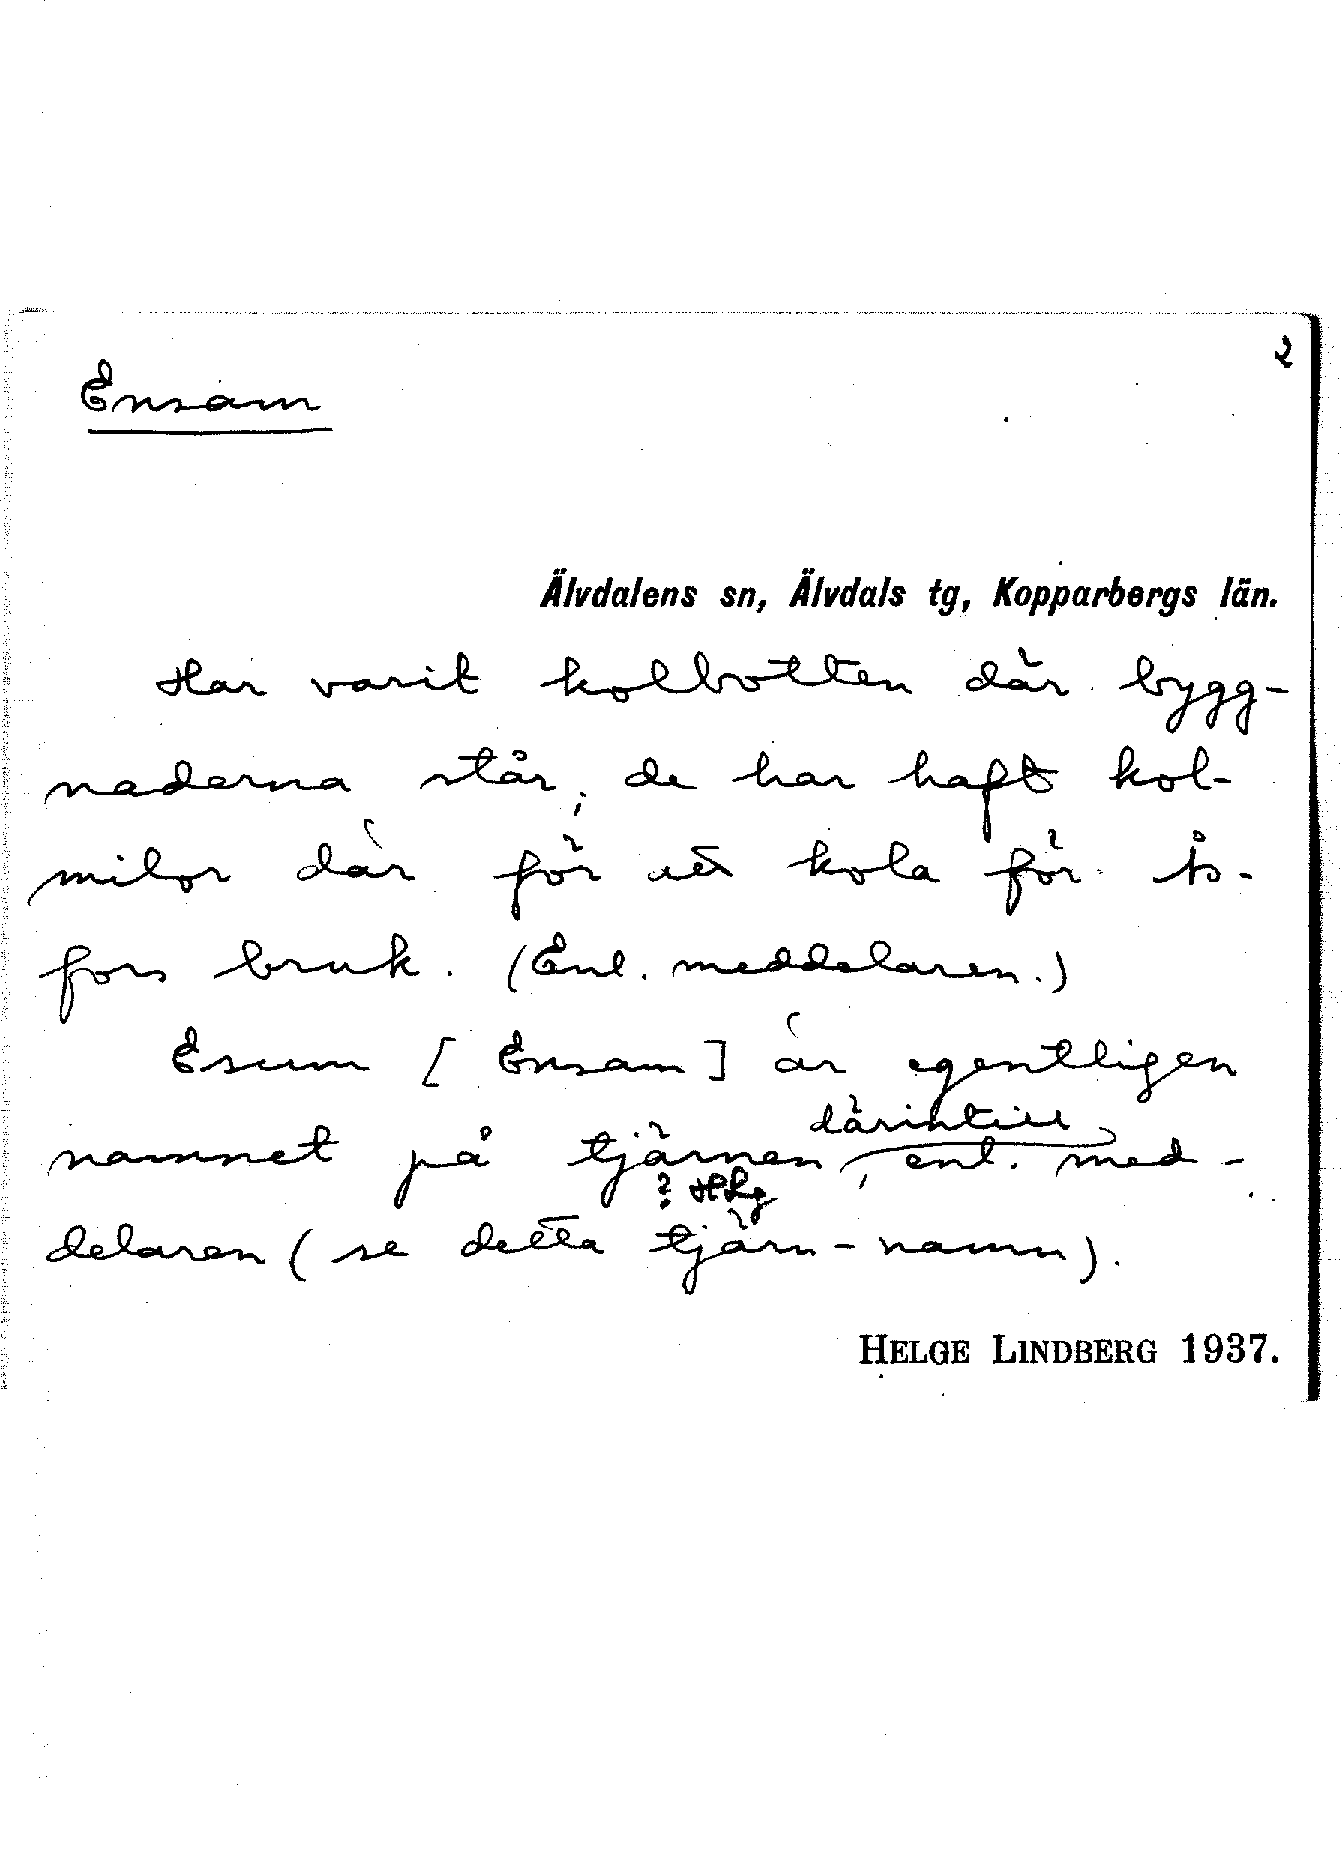 2
Ensam
Älvdalens sn, Älvdals tg, Kopparbergs län.
Har varit kolbotten där bygg-
naderna står; de har haft kol-
milor där för att kola för Ås-
fors bruk. (Enl. meddelaren.)
Esum [Ensam] är egentligen
namnet på tjärnen därintill, enl. med-
? HLg
delaren (se detta tjärn-namn).
HELGE LINDBERG 1937.